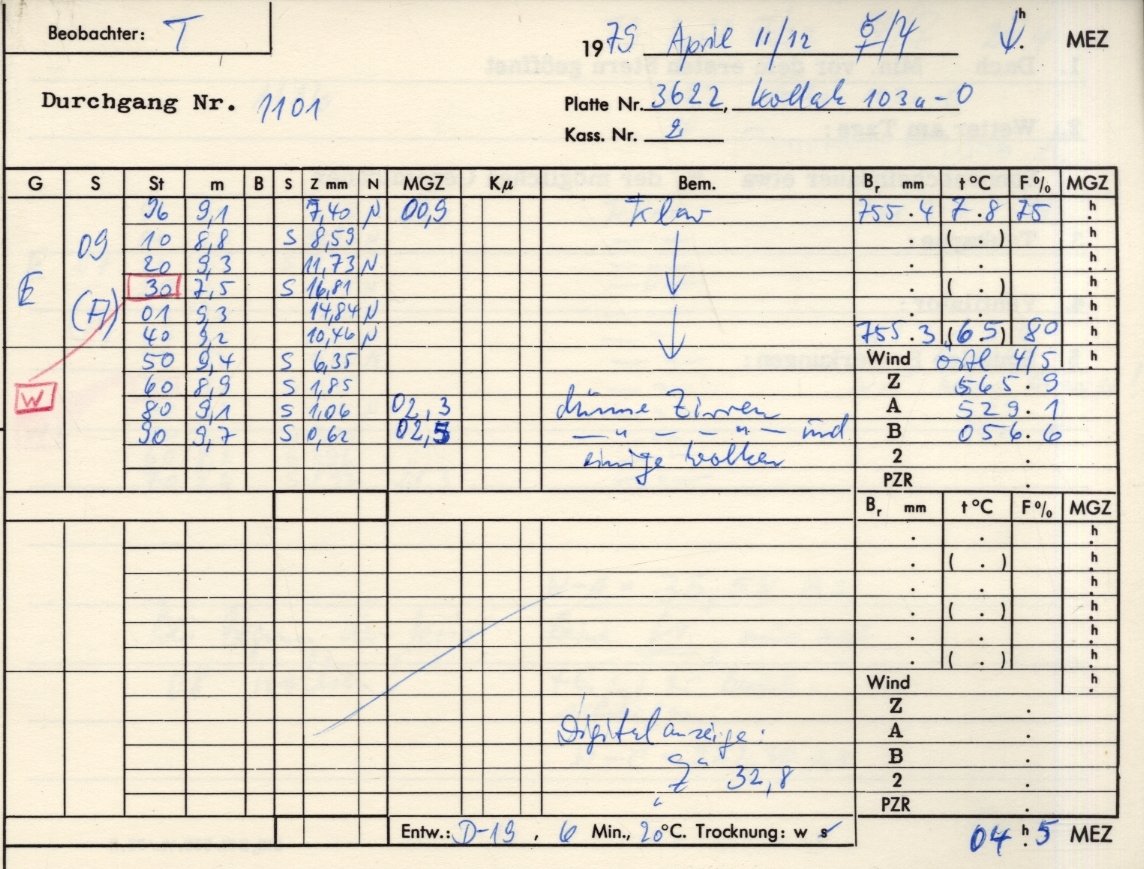 Beobachter: T
1979 April 11/12 h MEZ
Durchgang Nr. 1101
Platte Nr. 3622, Kodak 103a-O
Kass. Nr. 2
G S St m B S Z mm N MGZ Kμ Bem. Br mm t°C F% MGZ
96 9,1 7,40 N 00,9 klar 755.4 7.8 75 h
09 10 8,8 S 8,59 ( . ) h
20 9,3 11,73 N . . h
E 30 7,5 S 16,81 ( . ) h
(A) 01 9,3 14,84 N . . h
40 9,2 10,46 N 755.3 (6.5) 80 h
50 9,4 S 6,35 Wind östl 4/5 h
60 8,9 S 1,85 Z 565 9
W 80 9,1 S 1,06 02,3 dünne Zirren A 529.1
90 9,7 S 0,62 02,5 — " — — " — und B 056.6
einige Wolken 2 .
PZR .
Br mm t°C F% MGZ
. . h
. ( . ) h
. . h
. ( . ) h
. . h
. ( . ) h
Wind h
Z .
Digitalanzeige: A .
B .
Z" 32,8 2 .
PZR .
Entw.: D-19, 6 Min., 20°C. Trocknung: w s
04 h 5 MEZ